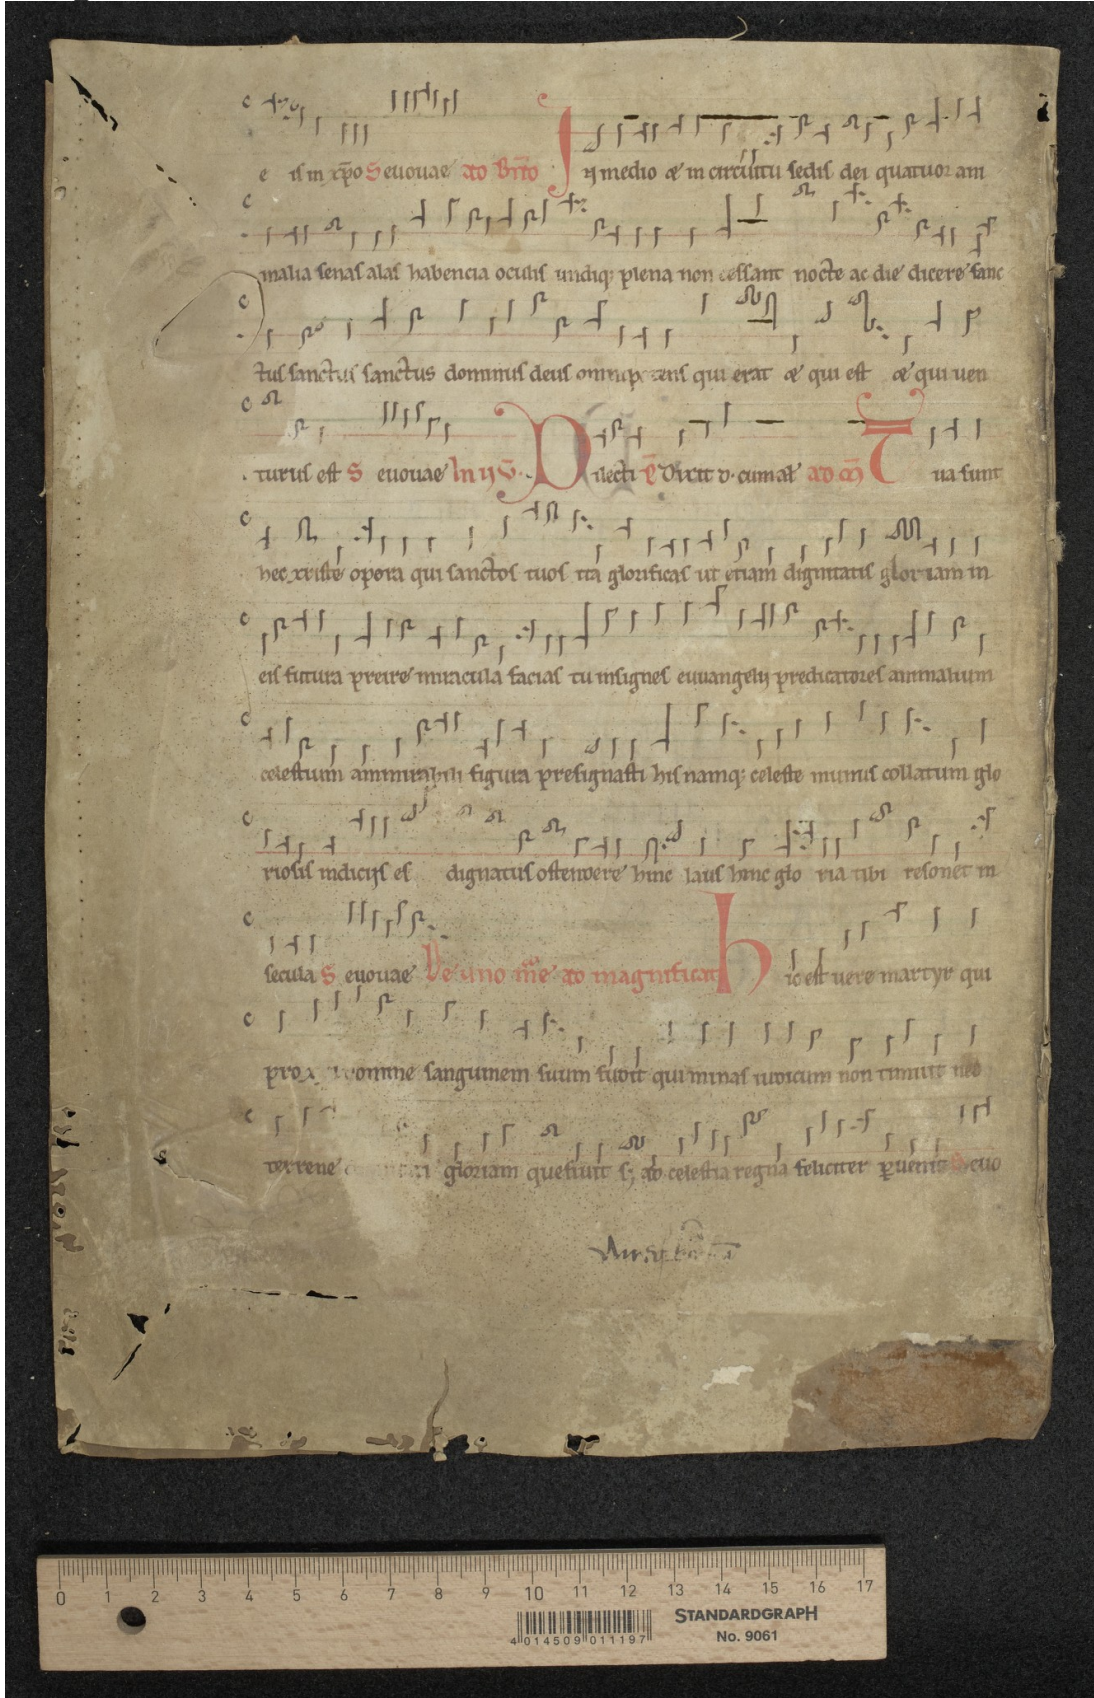 e is in xp̄o S euouae ad Bn̄to In medio & in circuitu sedis dei quatuor ani
malia senas alas habencia oculis undiq; plena non cessant nocte ac die dicere sanc
tus sanctus sanctus dominus deus omnipotens qui erat & qui est & qui uen
turus est S euouae In ij v̄. Dilecti ē Dixit d. cum al ad m̄ Tua sunt
hec xp̄iste opera qui sanctos tuos ita glorificas ut etiam dignitatis gloriam in
eis futura preire miracula facias tu insignes euuangelij predicatores animalium
celestium ammirabili figura presignasti his namq; celeste munus collatum glo
riosis indicijs es dignatus ostendere hinc laus hinc glo ria tibi resonet in
secula S euouae De uno m̄re ad magnificat hic est uere martyr qui
pro nomine sanguinem suum fudit qui minas iudicum non timuit nec
terrene gloriam quesiuit s; ad celestia regna feliciter puenit S euo
0 1 2 3 4 5 6 7 8 9 10 11 12 13 14 15 16 17
STANDARDGRAPH
No. 9061
4 014509 011197